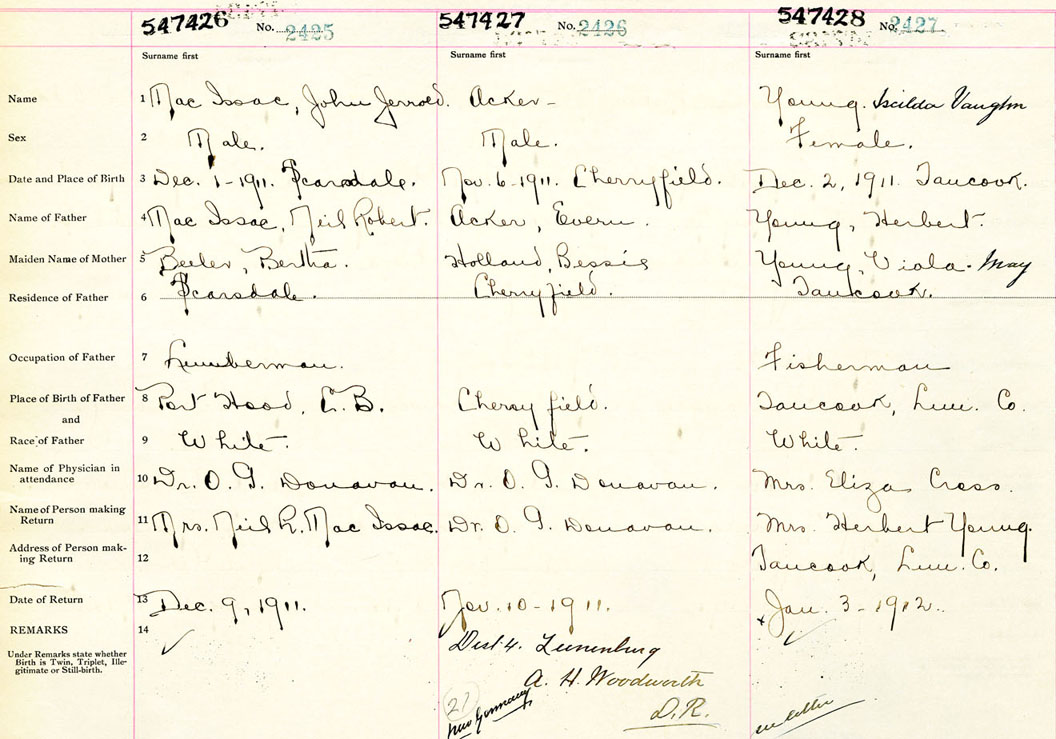 547426 No. 2425 547427 No. 2426 547428 No. 2427
Surname first Surname first Surname first
Name 1 Mac Issac, John Jerrold. Acker - Young. Iscilda Vaughn
Sex 2 Male. Male. Female.
Date and Place of Birth 3 Dec. 1-1911. Scarsdale. Nov. 6-1911. Cherryfield. Dec. 2, 1911. Tancook.
Name of Father 4 Mac Issac, Neil Robert. Acker, Evern. Young, Herbert.
Maiden Name of Mother 5 Beeler, Bertha. Holland, Bessie Young, Viola. May
Residence of Father 6 Scarsdale. Cherryfield. Tancook.
Occupation of Father 7 Lumberman. Fisherman
Place of Birth of Father 8 Port Hood, C.B. Cherry field. Tancook, Lun. Co.
and
Race of Father 9 White. White. White.
Name of Physician in
attendance 10 Dr. O. G. Donavan. Dr. O. G. Donavan. Mrs. Eliza Cross.
Name of Person making
Return 11 Mrs. Neil R. Mac Issac. Dr. O. G. Donavan. Mrs. Herbert Young.
Address of Person mak-
ing Return 12 Tancook, Lun. Co.
Date of Return 13 Dec. 9, 1911. Nov. 10-1911. Jan. 3-1912.
REMARKS 14
Under Remarks state whether
Birth is Twin, Triplet, Ille-
gitimate or Still-birth.
Dist 4. Lunenburg
A. H. Woodworth
D.R.
27
New Germany